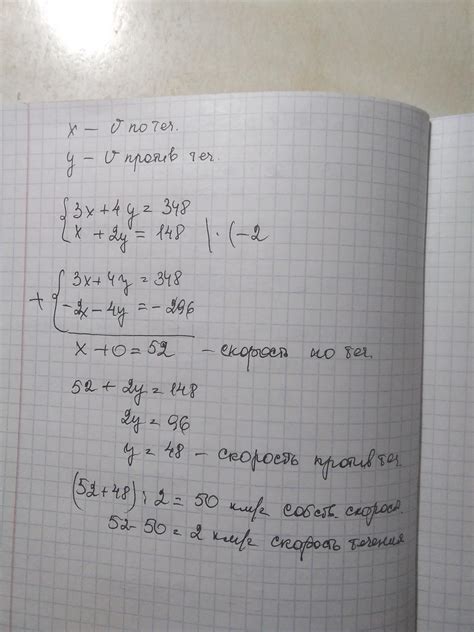 x — v по теч.
y — v против теч.
{ 3x + 4y = 348
x + 2y = 148 | · (-2
+ { 3x + 4y = 348
-2x - 4y = - 296
x + 0 = 52 — скорость по теч.
52 + 2y = 148
2y = 96
y = 48 — скорость против теч.
(52 + 48) : 2 = 50 км/г собств. скорост
52 - 50 = 2 км/г скорость течения